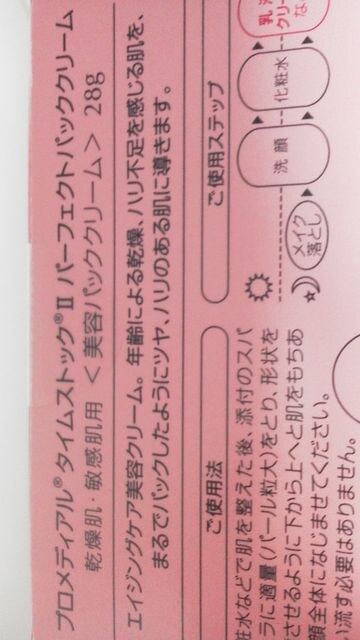 プロメディアル®タイムストック®Ⅱ パーフェクトパッククリーム
乾燥肌・敏感肌用 ＜美容パッククリーム＞ 28g
エイジングケア美容クリーム。年齢による乾燥、ハリ不足を感じる肌を、
まるでパックしたようにツヤ、ハリのある肌に導きます。
ご使用法
粧水などで肌を整えた後、添付のスパ
ラに適量(パール粒大)をとり、形状を
させるように下から上へと肌をもちあ
顔全体になじませてください。
流す必要はありません。
ご使用ステップ
メイク
落とし
洗顔
化粧水
乳
クリー
な